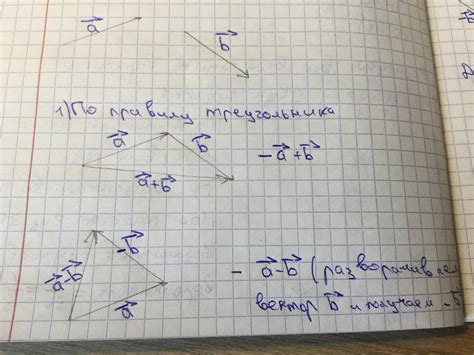 a⃗ b⃗
1) По правилу треугольника
a⃗ b⃗
a⃗+b⃗ - a⃗+b⃗
-b⃗
a⃗-b⃗ - a⃗-b⃗ (разворачиваем
a⃗ вектор b⃗ и получаем -b⃗